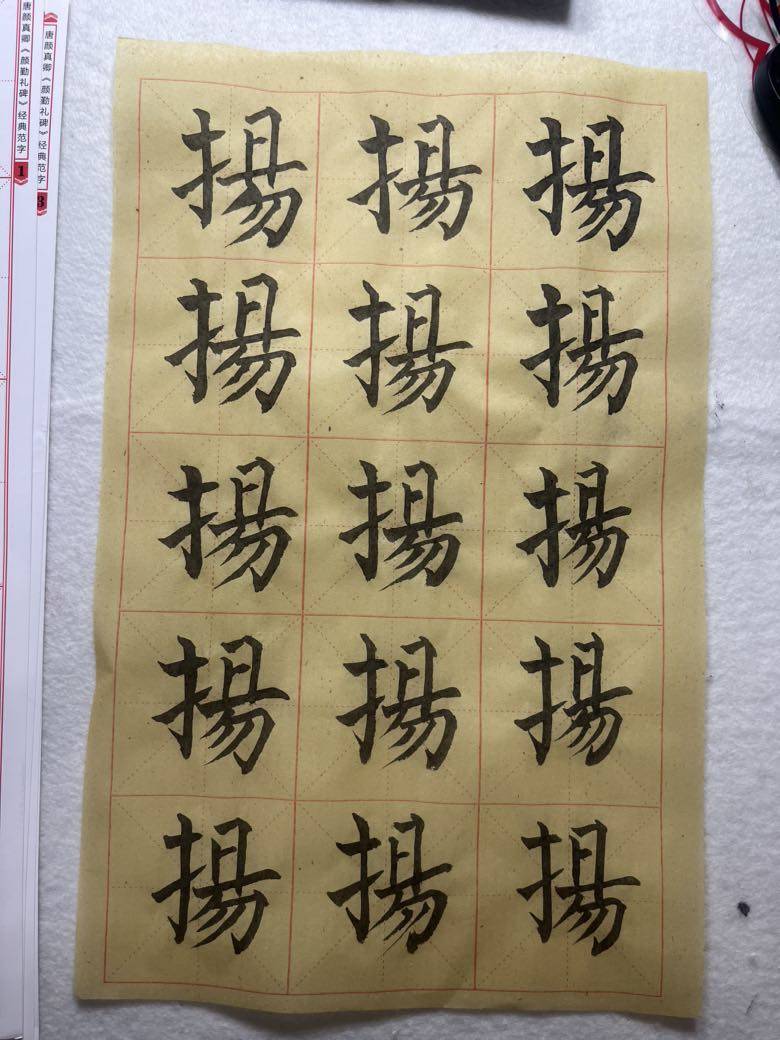 唐颜真卿《颜勤礼碑》经典范字 1
唐颜真卿《颜勤礼碑》经典范字 3
揚 揚 揚
揚 揚 揚
揚 揚 揚
揚 揚 揚
揚 揚 揚